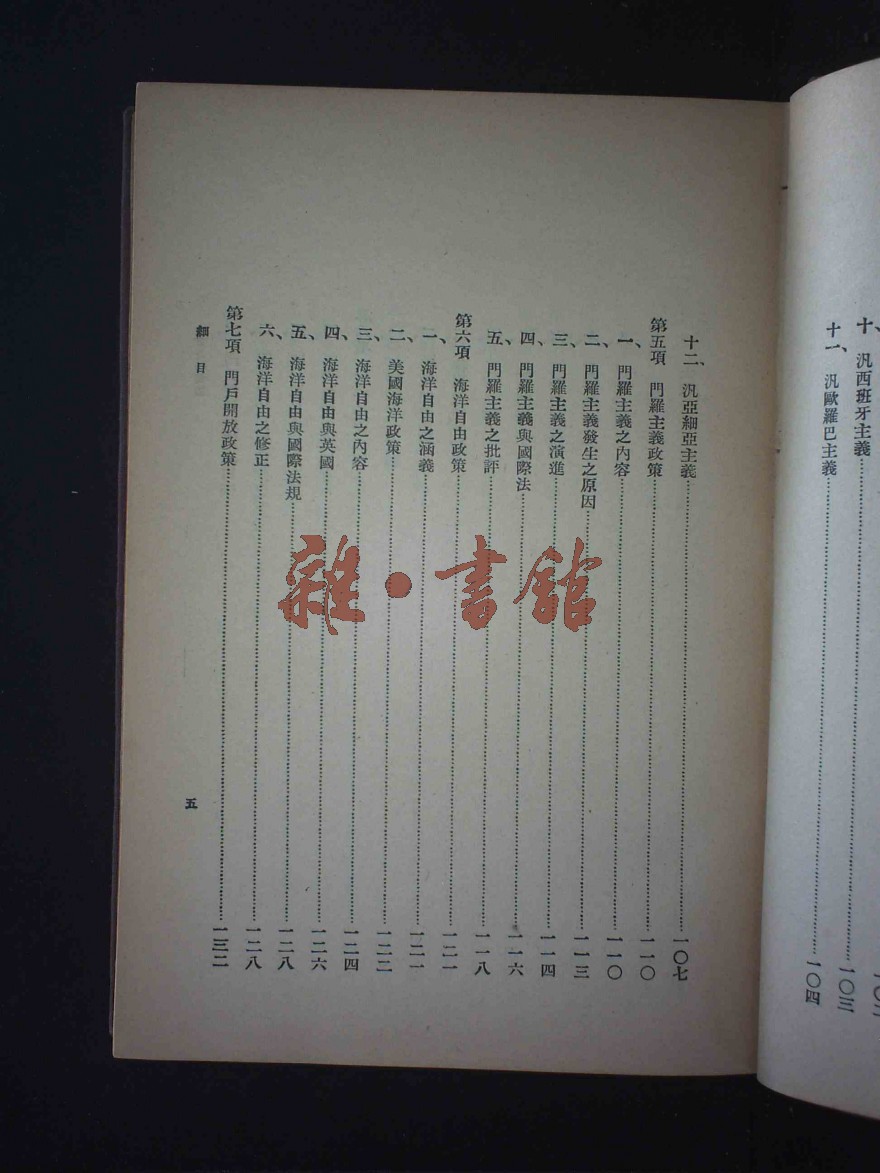 十、汎西班牙主義……一〇三
十一、汎歐羅巴主義……一〇四
十二、汎亞細亞主義……一〇七
第五項　門羅主義政策……一一〇
一、門羅主義之內容……一一〇
二、門羅主義發生之原因……一一三
三、門羅主義之演進……一一四
四、門羅主義與國際法……一一六
五、門羅主義之批評……一一八
第六項　海洋自由政策……一二一
一、海洋自由之涵義……一二一
二、美國海洋政策……一二二
三、海洋自由之內容……一二四
四、海洋自由與英國……一二六
五、海洋自由與國際法規……一二八
六、海洋自由之修正……一二八
第七項　門戶開放政策……一三二
細目
五
雜·書館